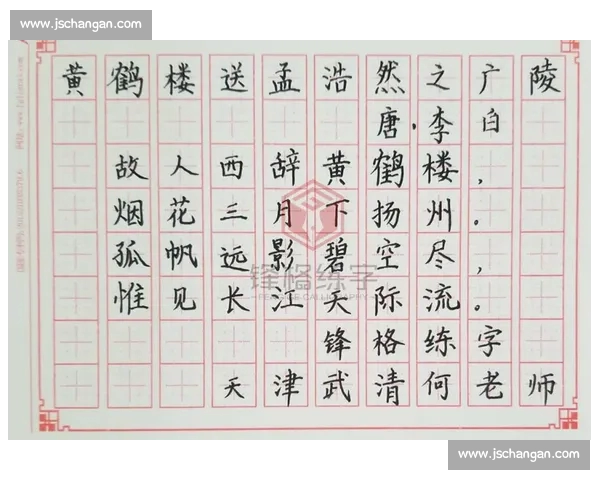 www.jschangan.com
黄鹤楼送孟浩然之广陵
唐·李白
故人西辞黄鹤楼，
烟花三月下扬州。
孤帆远影碧空尽，
惟见长江天际流。
锋格练字
锋格练字
天津武清何老师
www.jschangan.com